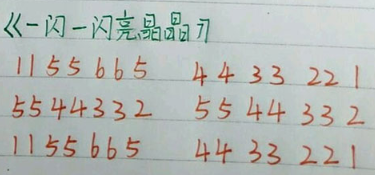 《一闪一闪亮晶晶》
11 55 665 44 33 22 1
55 44 33 2 55 44 33 2
11 55 665 44 33 221